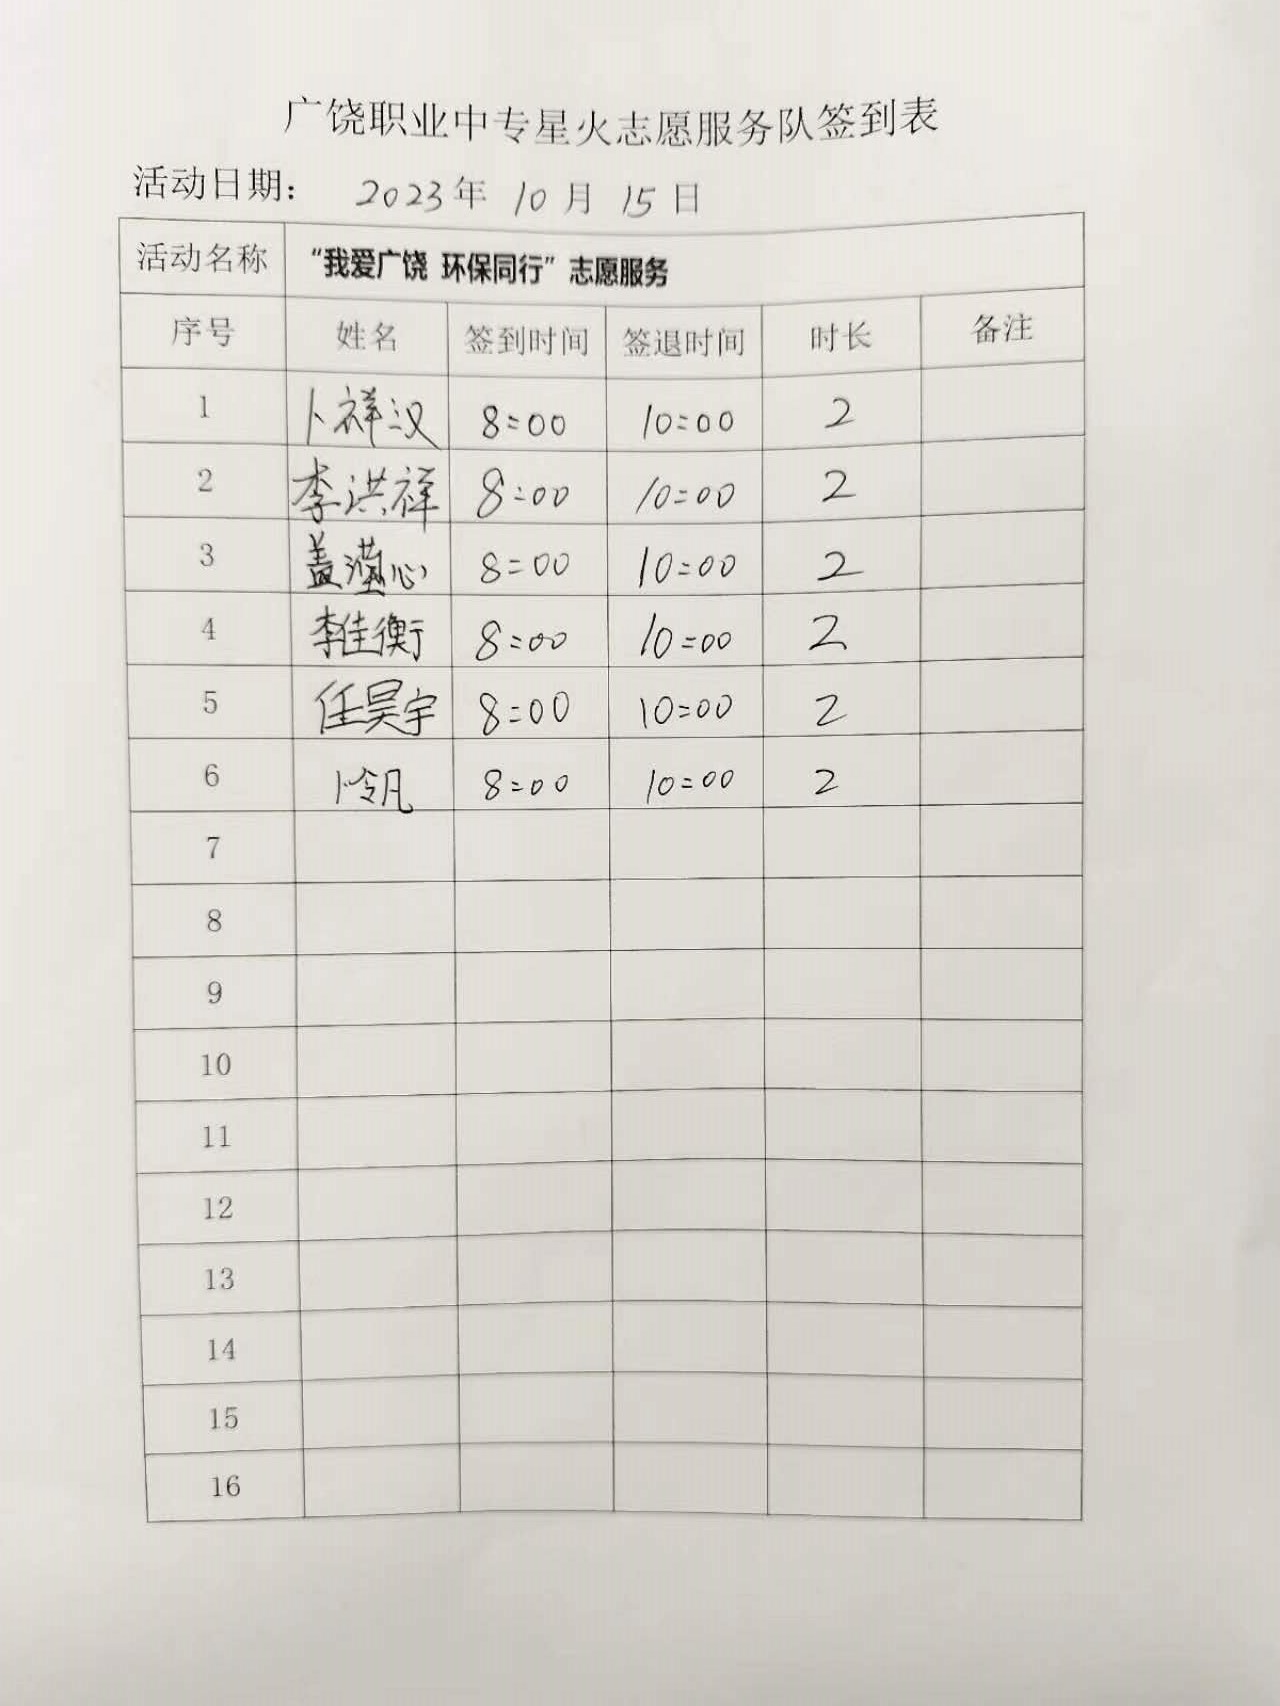 广饶职业中专星火志愿服务队签到表
活动日期： 2023年 10月 15日
活动名称 “我爱广饶 环保同行”志愿服务
序号 姓名 签到时间 签退时间 时长 备注
1 卜祥汉 8:00 10:00 2
2 李洪祥 8:00 10:00 2
3 盖 心 8:00 10:00 2
4 李佳衡 8:00 10:00 2
5 任昊宇 8:00 10:00 2
6 卜令凡 8:00 10:00 2
7
8
9
10
11
12
13
14
15
16